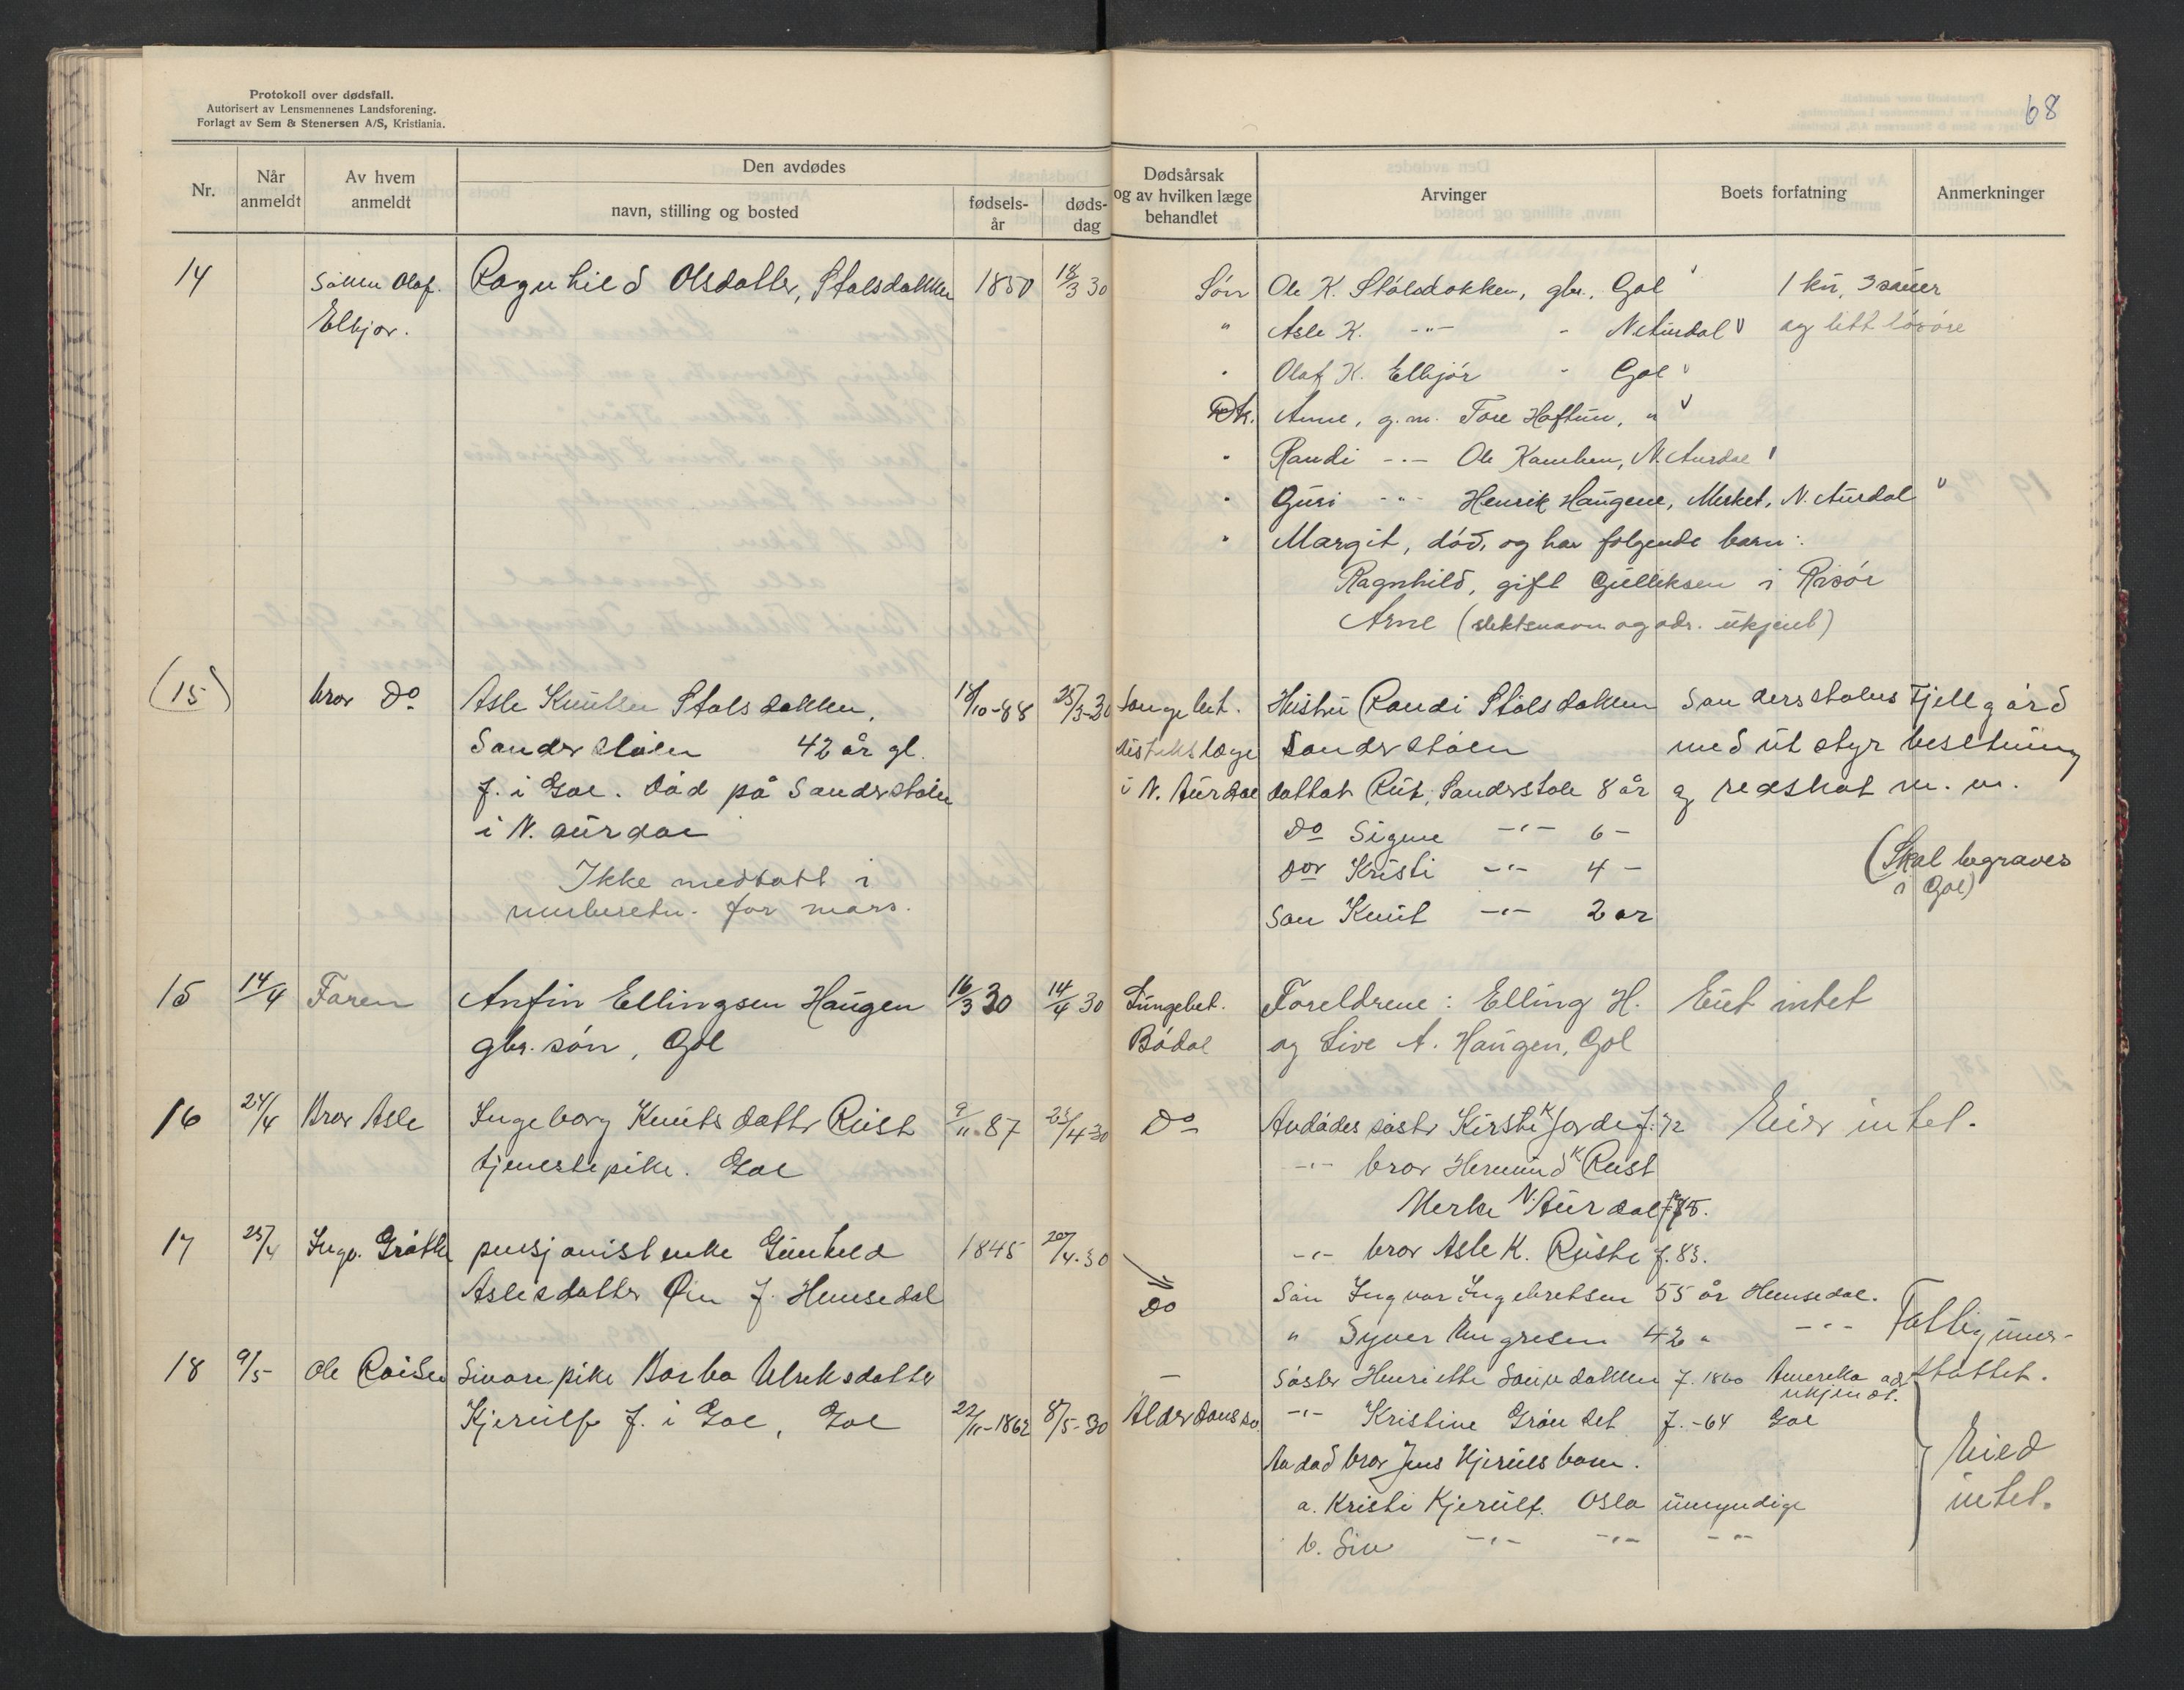 Protokoll over dødsfall.
Autorisert av Lensmennenes Landsforening.
Forlagt av Sem & Stenersen A/S, Kristiania.
68
Nr.
Når anmeldt
Av hvem anmeldt
Den avdødes
navn, stilling og bosted
fødsels-år
døds-dag
Dødsårsak og av hvilken læge behandlet
Arvinger
Boets forfatning
Anmerkninger
14 Sønn Olaf. Ragnhild Olsdatter, Stølsdokken 1850 18/3 30 Søn Ole K. Stølsdokken, gbr., Gol 1 ku, 3 sauer
Elbjør. " Asle K. -"- - N. Aurdal og litt løsøre
" Olaf K. Elbjør - Gol
Dtr. Anne, g.m. Tore Haftun, "
" Randi -"- Ole Kamben, N. Aurdal
" Guri -"- Henrik Haugene, Merket, N. Aurdal
" Margit, død, og har følgende barn:
Ragnhild, gift Gulliksen i Risør
Arne (slektsnavn og adr. ukjent)
(15) bror Do Asle Knutsen Stølsdokken, /10-88 25/3-30 Lungebet. Hustru Randi Stølsdokken Sanderstølens Fjellgård
Sanderstølen 42 år gl. distriktslæge Sanderstølen med utstyr besetning
f. i Gol. Død på Sanderstølen i N. Aurdal datter Rut, Sanderstøle 8 år og redskap m. m.
i N. Aurdal Do Signe -"- 6 -
Ikke medtatt i Dor Kristi -"- 4 - (Skal begraves
innberetn. for mars. Søn Knut -"- 2 år i Gol)
15 14/4 Faren Anfin Ellingsen Haugen 16/3 30 14/4 30 Lungebet. Foreldrene: Elling H. Eiet intet
gbr. søn, Gol Bødal og Live A. Haugen, Gol
16 24/4 Bror Asle Ingeborg Knutsdatter Rust 9/11-87 23/4-30 Do Avdødes søster Kirsti K Jorde f. 72 Eier intet.
tjenestepike. Gol -"- bror Hermund K Rust
Merke N. Aurdal
17 25/4 Ingv. Grøtte pensjonist enke Gunhild 1845 20/4-30 -"- bror Asle K. Ruste f. 83.
Aslesdatter Øin f. Hemsedal Do Søn Ingvar Ingebretsen 55 år Hemsedal.
" Syver Ungresen 42 " -"- Fattigunder-
18 9/5 Ole Sivare pike Barbo Ulriksdatter — Søster Henriette f. 1860 Amerika adr. støttet.
ukjendt.
Kjerulf f. i Gol, Gol 22/11-1862 8/5-30 Alderdoms -"- Kristine Grøndet f. -64 Gol
Avdød bror Jens Kjerulfs barn. Eied
a. Kristi Kjerulf. Oslo umyndige intet.
b. Siv -"- -"- -"-